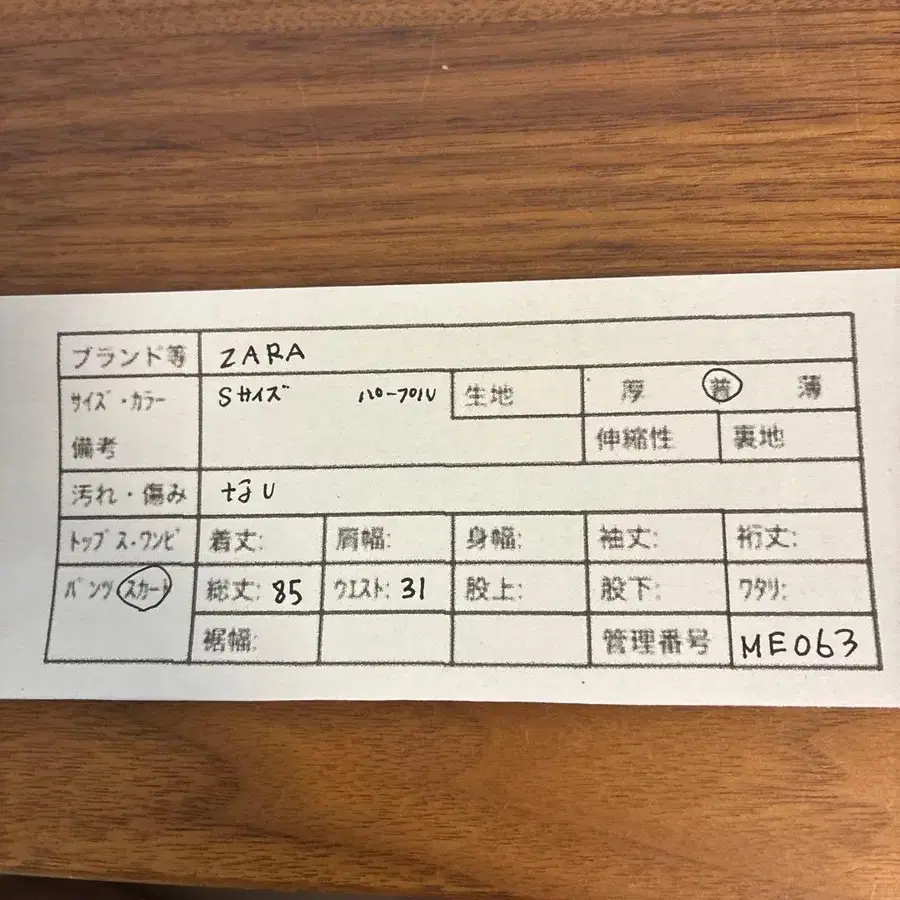 ブランド等 ZARA
サイズ・カラー Sサイズ パープル 生地 厚 普 薄
備考 伸縮性 裏地
汚れ・傷み なし
トップス・ワンピ 着丈: 肩幅: 身幅: 袖丈: 裄丈:
パンツ スカート 総丈: 85 ウエスト: 31 股上: 股下: ワタリ:
裾幅: 管理番号 ME063